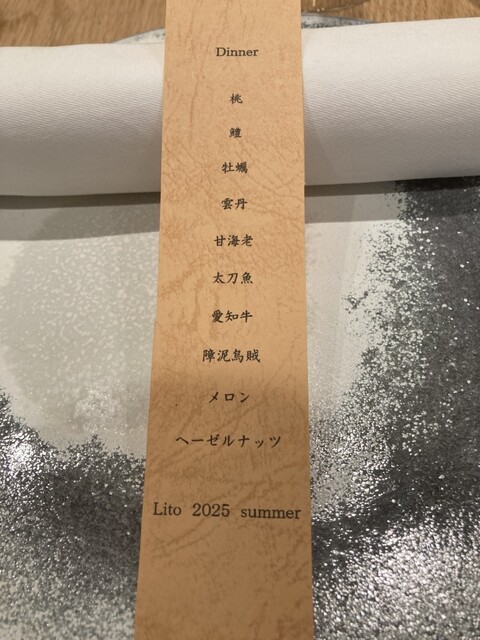 Dinner
桃
鱧
牡蠣
雲丹
甘海老
太刀魚
愛知牛
障泥烏賊
メロン
ヘーゼルナッツ
Lito 2025 summer